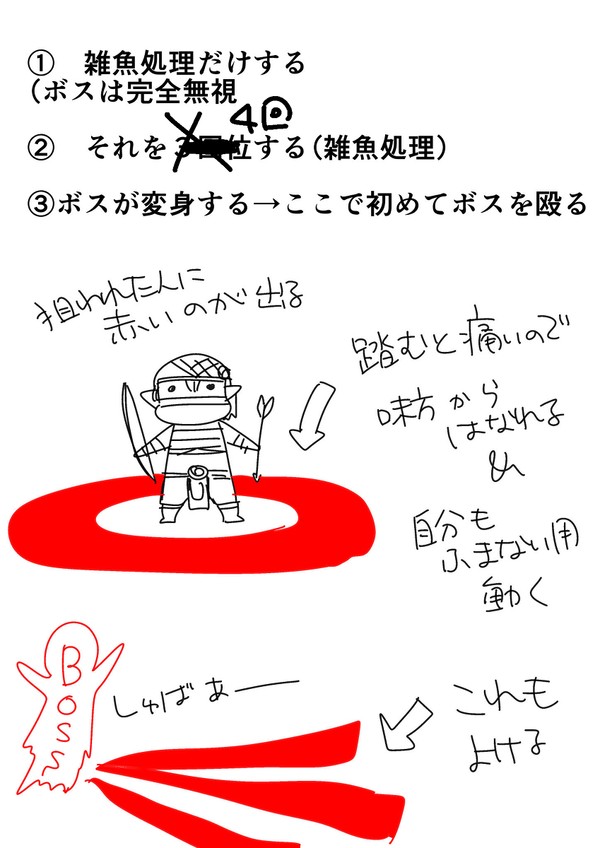 ① 雑魚処理だけする
(ボスは完全無視
4回
② それを3回位する(雑魚処理)
③ボスが変身する→ここで初めてボスを殴る
狙われた人に
赤いのが出る
踏むと痛いので
味方から
はなれる
&
自分も
ふまない用
動く
BOSS
しゅばあー
これも
よける